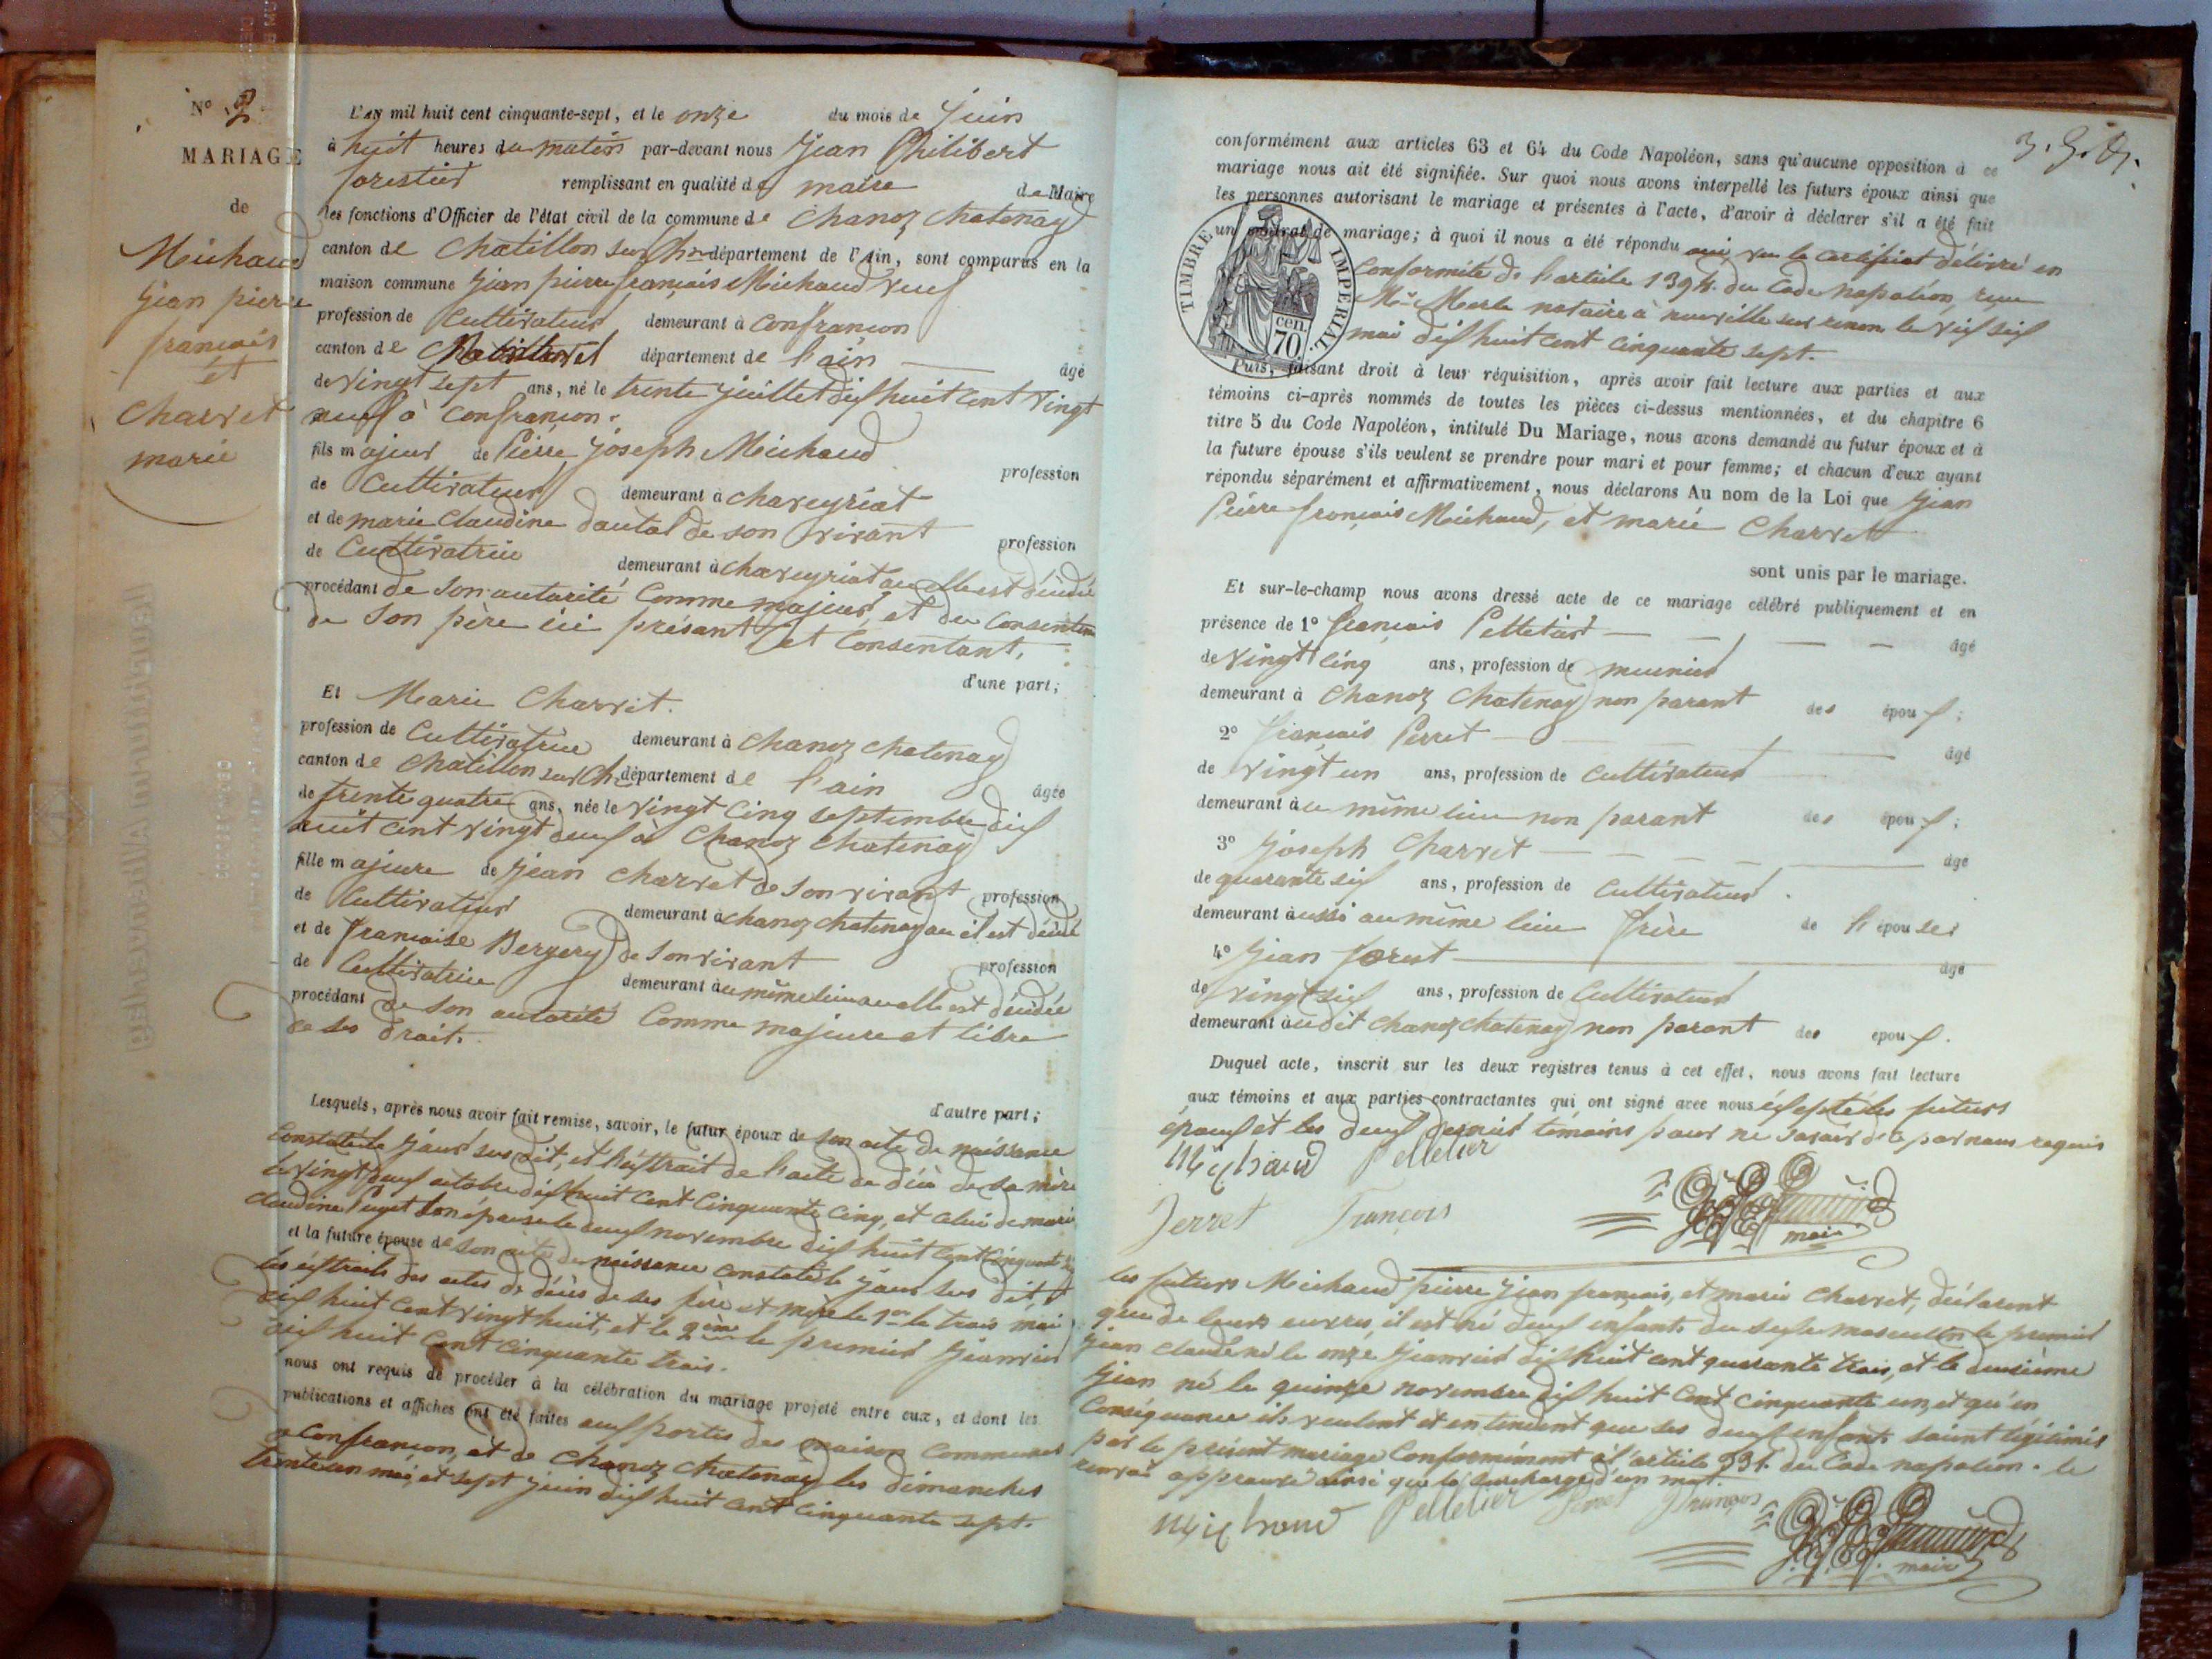 N° 2.
MARIAGE
de
Michaud
Jean pierre
françois
et
Charvet
marie
L'An mil huit cent cinquante-sept, et le onze du mois de Juin
à huit heures du matin par-devant nous Jean Philibert
forestier remplissant en qualité de maire de Maire
les fonctions d'Officier de l'état civil de la commune de Chanoz Chatenay
canton de Chatillon sur Ch.ne département de l'Ain, sont comparus en la
maison commune Jean pierre françois Michaud veuf
profession de Cultivateur demeurant à Confrançon
canton de département de l'ain âgé
de Vingt sept ans, né le trente Juillet dix huit cent Vingt
neuf à Confrançon.
fils majeur de Pierre Joseph Michaud profession
de Cultivateur demeurant à Chaveyriat
et de marie Claudine dautal de son vivant profession
de Cultivatrice demeurant à Chaveyriat ou elle est décédée
procédant de son autorité Comme majeur, et du Consentem
de Son père ici présant et Consentant,
d'une part;
Et Marie Charvet.
profession de Cultivatrice demeurant à Chanoz Chatenay
canton de Chatillon sur Ch.ne département de l'ain âgée
de trente quatre ans, née le Vingt Cinq Septembre dix
huit cent vingt deux à Chanoz Chatenay
fille majeure de Jean Charvet de Son vivant profession
de Cultivateur demeurant à Chanoz Chatenay ou il est décédé
et de françoise Bergery de Son vivant profession
de Cultivatrice demeurant au même lieu ou elle est décédée
procédant de Son autorité Comme majeure et libre
de ses droit.
d'autre part;
Lesquels, après nous avoir fait remise, savoir, le futur époux de Son acte de naissance
Constaté le Jour sus dit, et l'extrait de l'acte de décè de sa mère
le vingt deux octobre dix huit Cent Cinquante Cinq, et celui de marie
Claudine Puget Son épouse le deux novembre dix huit Cent Cinquante
et la future épouse de Son acte de naissance Constaté le Jour sus dit, et
les extraits des actes de décès de ses père et mère le 1er le trois mai
dix huit Cent vingt huit, et le 2ème le premier Janvier
dix huit Cent Cinquante trois.
nous ont requis de procéder à la célébration du mariage projeté entre eux, et dont les
publications et affiches ont été faites aux portes des maison Communes
de Confrançon, et de Chanoz Chatenay les dimanches
trente un mai, et sept Juin dix huit cent Cinquante Sept.
conformément aux articles 63 et 64 du Code Napoléon, sans qu'aucune opposition à ce
mariage nous ait été signifiée. Sur quoi nous avons interpellé les futurs époux ainsi que
les personnes autorisant le mariage et présentes à l'acte, d'avoir à déclarer s'il a été fait
un contrat de mariage; à quoi il nous a été répondu oui vu le certificat délivré en
TIMBRE IMPERIAL.
70 cen.
Conformité de l'article 1394 du Code napoléon, reçu
Me Merle notaire à neuville sur renon le Vingt six
mai dix huit cent cinquante sept.
Puis, faisant droit à leur réquisition, après avoir fait lecture aux parties et aux
témoins ci-après nommés de toutes les pièces ci-dessus mentionnées, et du chapitre 6
titre 5 du Code Napoléon, intitulé Du Mariage, nous avons demandé au futur époux et à
la future épouse s'ils veulent se prendre pour mari et pour femme; et chacun d'eux ayant
répondu séparément et affirmativement, nous déclarons Au nom de la Loi que Jean
Pierre françois Michaud, et marie Charvet
sont unis par le mariage.
Et sur-le-champ nous avons dressé acte de ce mariage célébré publiquement et en
présence de 1° françois Pelletier âgé
de Vingt Cinq ans, profession de meunier
demeurant à Chanoz Chatenay non parant des époux;
2° françois Perret âgé
de Vingt un ans, profession de Cultivateur
demeurant au même lieu non parant des époux;
3° Joseph Charvet âgé
de quarante six ans, profession de Cultivateur
demeurant aussi au même lieu frère de l'épouse;
4° Jean forest âgé
de Vingt six ans, profession de Cultivateur
demeurant audit Chanoz Chatenay non parant des époux.
Duquel acte, inscrit sur les deux registres tenus à cet effet, nous avons fait lecture
aux témoins et aux parties contractantes qui ont signé avec nous éxcepté les futurs
époux et les deux dernier témoins pour ne savoir de par nous requis
Michaud Pelletier
Perret François
maire
les futurs Michaud pierre Jean françois, et marie Charvet, déclarent
que de leurs euvres, il est né deux enfants du sexe masculin le premier
Jean Claude né le onze Janvier dix huit cent quarante trois, et le deuxième
Jean né le quinze novembre dix huit Cent Cinquante un, et qu'en
Conséquence ils veulent et entendent que ses deux enfants soient légitimés
par le présent mariage Conformément à l'article 331 du Code napoléon. le
renvoi approuvé ainsi que la surcharge d'un mot.
Michaud Pelletier Perret François
maire